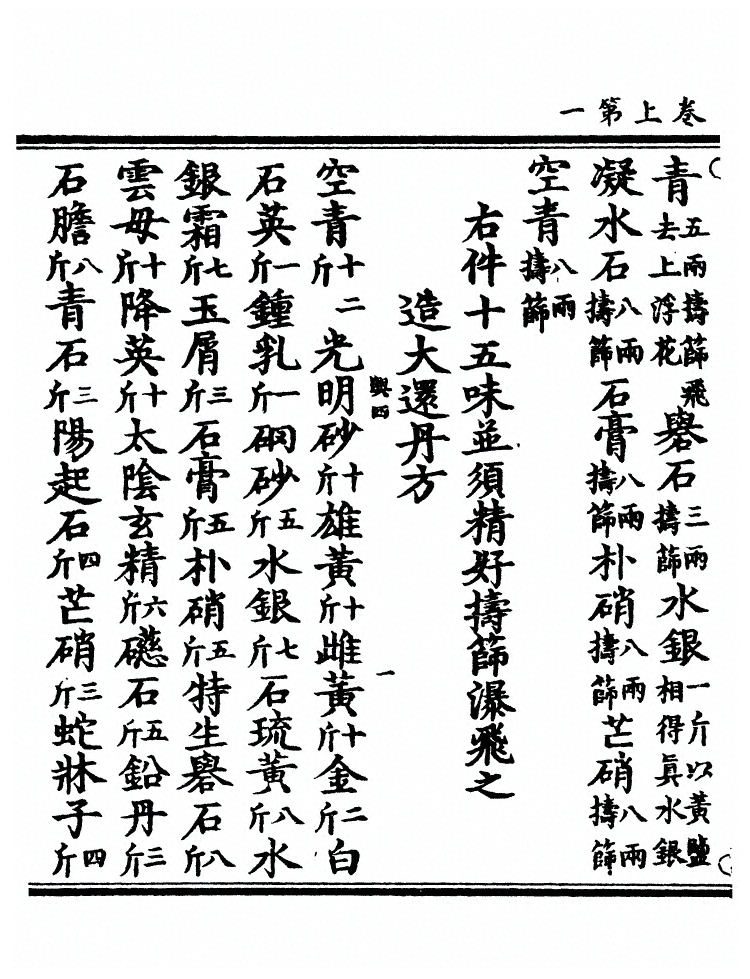 卷上第一
青五兩擣篩飛去上浮花礜石三兩擣篩水銀一斤以黃鹽相得真水銀
凝水石八兩擣篩石膏八兩擣篩朴硝八兩擣篩芒硝八兩擣篩
空青八兩擣篩
右件十五味並須精好擣篩瀑飛之
造大還丹方
輿四 一
空青十二斤光明砂十斤雄黃十斤雌黃十斤金二斤白
石英一斤鍾乳一斤硇砂五斤水銀七斤石琉黃八斤水
銀霜七斤玉屑三斤石膏五斤朴硝五斤特生礜石八斤
雲母十斤降英十斤太陰玄精六斤礠石五斤鉛丹三斤
石膽八斤青石三斤陽起石四斤芒硝三斤蛇牀子四斤